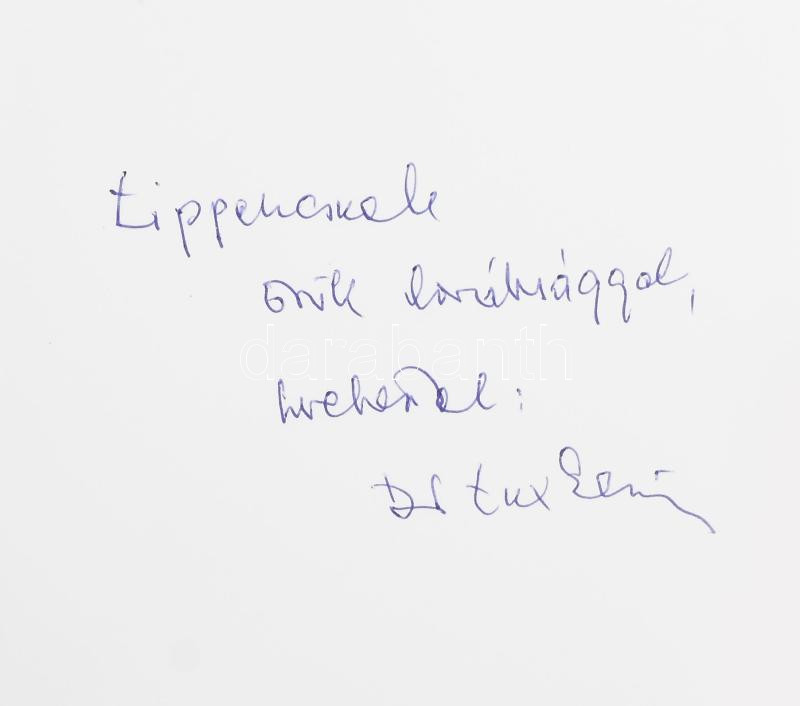 Lippencsnek
örök barátsággal,
darabanth
szeretettel :
Dr Lux